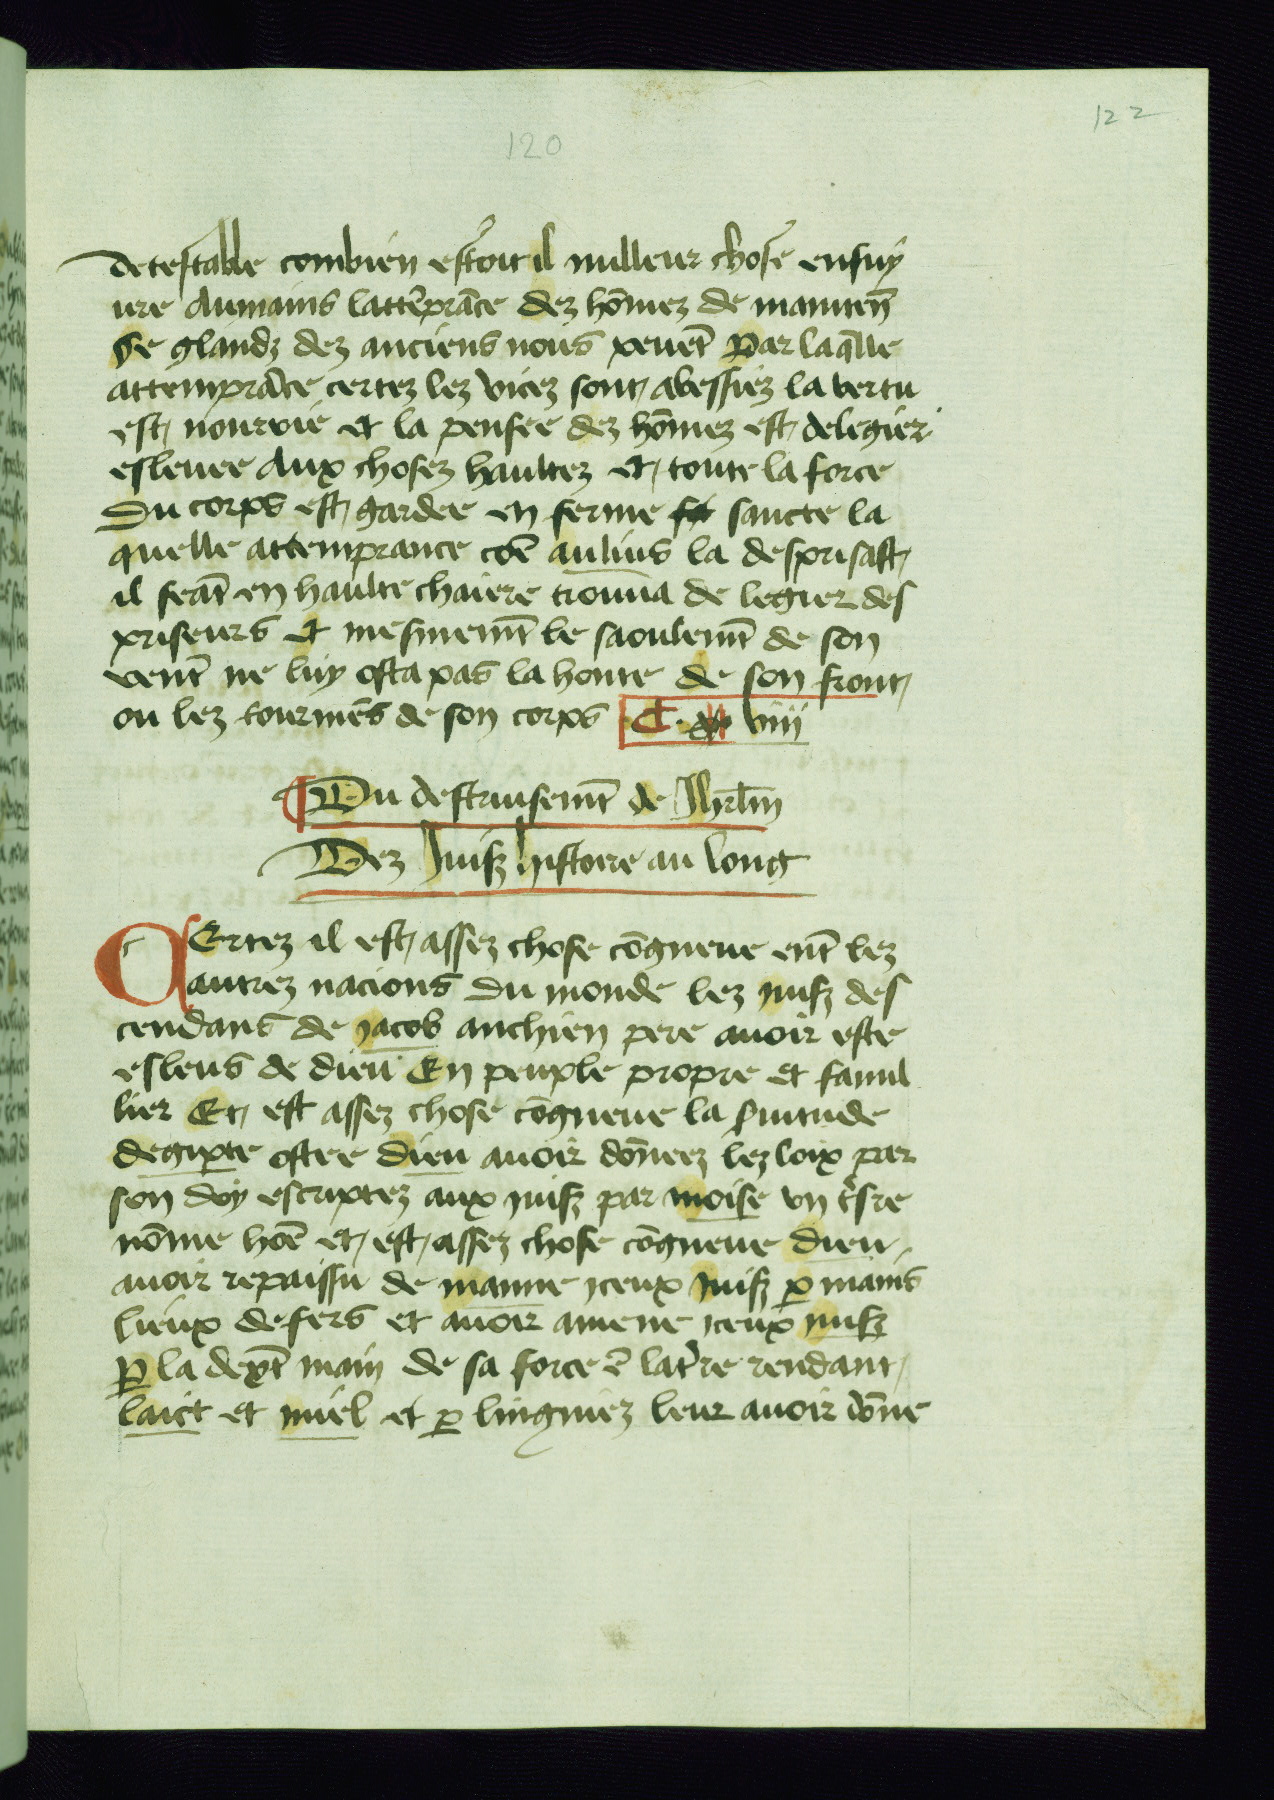 122
120
detestable combien estoit il milleur chose ensuy
ure Aumains lattẽprãce dez hõmez de mainteñ
se glandz dez anciens nous peuẽt Par laq̃lle
attemprãce certez lez vicez sont abessiez la vertu
est nourrie et la pensee dez hõmez est delegier
esleuee Aux chosez haultez et toute la force
Du corps est gardee en ferme sancte la
quelle attemprance cõe aulius la desprisast
il seãt en haulte chaiere trouua de legier des
priseurs Et mesmemẽt le saoulemẽt de son
ventˀ ne luy osta pas la honte de son front
ou lez tourmẽs de son corps C. viii
¶ Du destruisemẽt de Jhrl̃m
Dez Juifz histoire au long
CErtez il est assez chose cõgneue entˀ lez
autrez nacions Du monde lez juifz des
cendans de jacob anchien pere auoir este
esleus de dieu En peuple propre et famil
lier Et est assez chose cõgneue la s̃uitude
degipte ostee dieu auoir dõneez lez loix par
son doy escriptez aux juifz par moise vn tˀsre
nõme hõe et est assez chose cõgneue dieu
auoir repaissu de manne iceux Juifz ꝑ mains
lieux desers et auoir amene iceux juifz
ꝑ la dextˀ main de sa force ẽ latˀre rendant
laict et miel et ꝑ lingniez leur auoir dõne